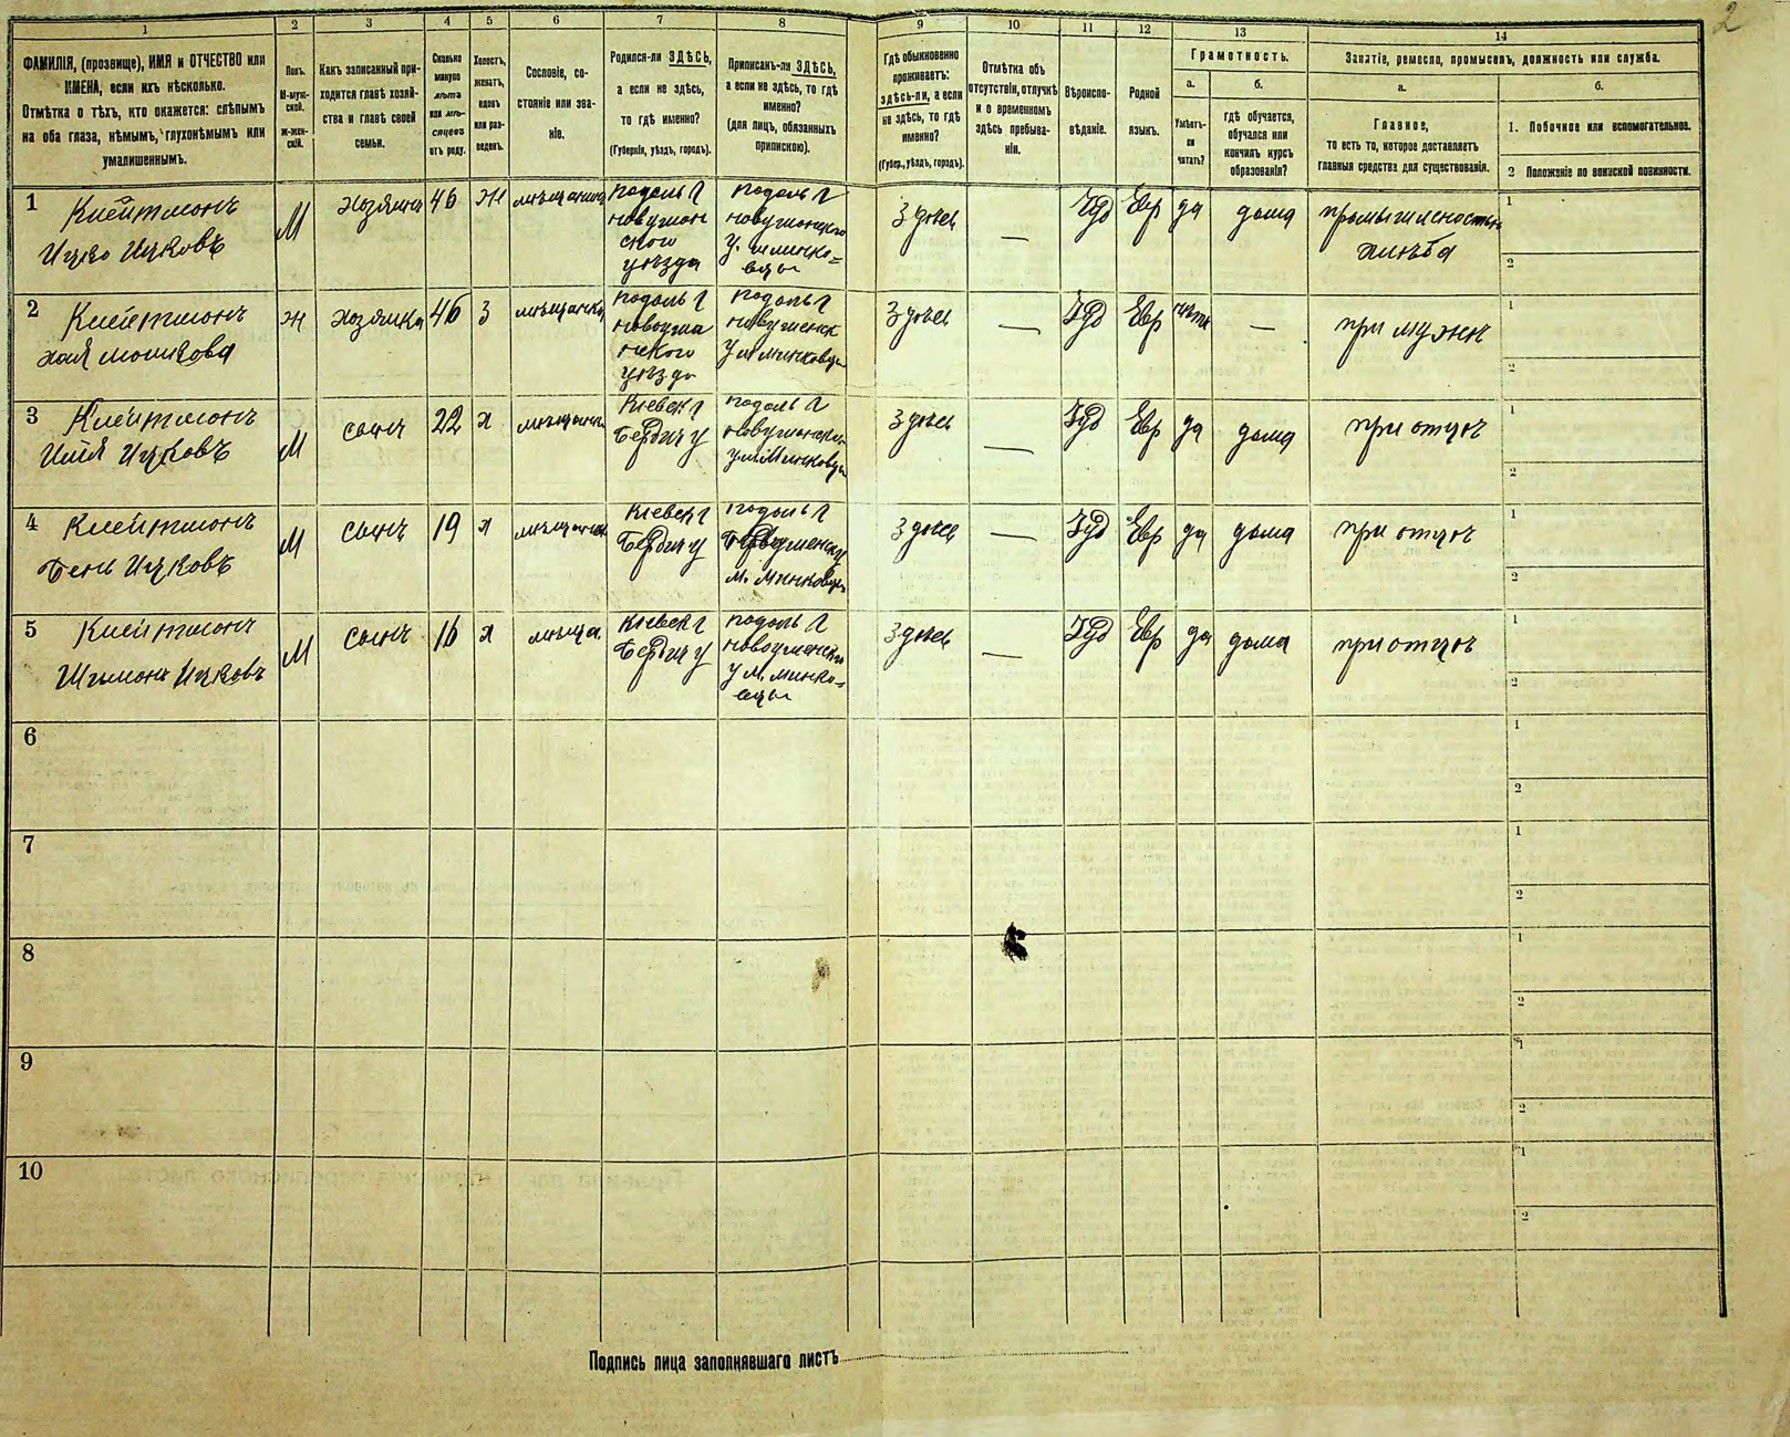 2
1
2
3
4
5
6
7
8
9
10
11
12
13
14
ФАМИЛІЯ, (прозвище), ИМЯ и ОТЧЕСТВО или
ИМЕНА, если ихъ нѣсколько.
Отмѣтка о тѣхъ, кто окажется: слѣпымъ
на оба глаза, нѣмымъ, глухонѣмымъ или
умалишеннымъ.
Полъ.
М-муж-
ской.
Ж-жен-
скій.
Какъ записанный при-
ходится главѣ хозяй-
ства и главѣ своей
семьи.
Сколько
минуло
лѣтъ
или мѣ-
сяцевъ
отъ роду.
Холостъ,
женатъ,
вдовъ
или раз-
веденъ.
Сословіе, со-
стояніе или зва-
ніе.
Родился-ли ЗДѢСЬ,
а если не здѣсь,
то гдѣ именно?
(Губернія, уѣздъ, городъ).
Приписанъ-ли ЗДѢСЬ,
а если не здѣсь, то гдѣ
именно?
(для лицъ, обязанныхъ
припискою).
Гдѣ обыкновенно
проживаетъ:
здѣсь-ли, а если
не здѣсь, то гдѣ
именно?
(Губер., уѣздъ, городъ).
Отмѣтка объ
отсутствіи, отлучкѣ
и о временномъ
здѣсь пребыва-
ніи.
Вѣроиспо-
вѣданіе.
Родной
языкъ.
Грамотность.
а.
Умѣетъ-
ли
читать?
б.
гдѣ обучается,
обучался или
кончилъ курсъ
образованія?
Занятіе, ремесло, промыселъ, должность или служба.
а.
Главное,
то есть то, которое доставляетъ
главныя средства для существованія.
б.
1. Побочное или вспомогательное.
2 Положеніе по воинской повинности.
1
Клейтманъ
Ицко Ицковъ
М
хозяинъ
46
Ж
мѣщанинъ
подоль г
новушин
ского
уѣзда
подоль г
У. минко=
вцы
здѣсь
—
Іуд
Евр
да
дома
1
2
2
Клейтманъ
хая мошкова
ж
хозяйка
46
З
мѣщанка
подоль г
уѣзда
подоль г
У м минковцы
здѣсь
—
Іуд
Евр
нѣтъ
—
при мужѣ
1
2
3
Клейтманъ
Ицковъ
М
сынъ
22
х
мѣщанинъ
Кіевск г
Бердич у
подоль г
у м Минковцы
здѣсь
—
Іуд
Евр
да
дома
при отцѣ
1
2
4
Клейтманъ
Бень Ицковъ
М
сынъ
19
х
мѣщанинъ
Кіевск г
Бердич у
подоль г
м. Минковцы
здѣсь
—
Іуд
Евр
да
дома
при отцѣ
1
2
5
Клейтманъ
Шимонъ Ицковъ
М
сынъ
16
х
мѣща
Кіевск г
Бердич у
подоль г
у м. минко=
вцы
здѣсь
—
Іуд
Евр
да
дома
при отцѣ
1
2
6
1
2
7
1
2
8
1
2
9
1
2
10
1
2
Подпись лица заполнявшаго листъ